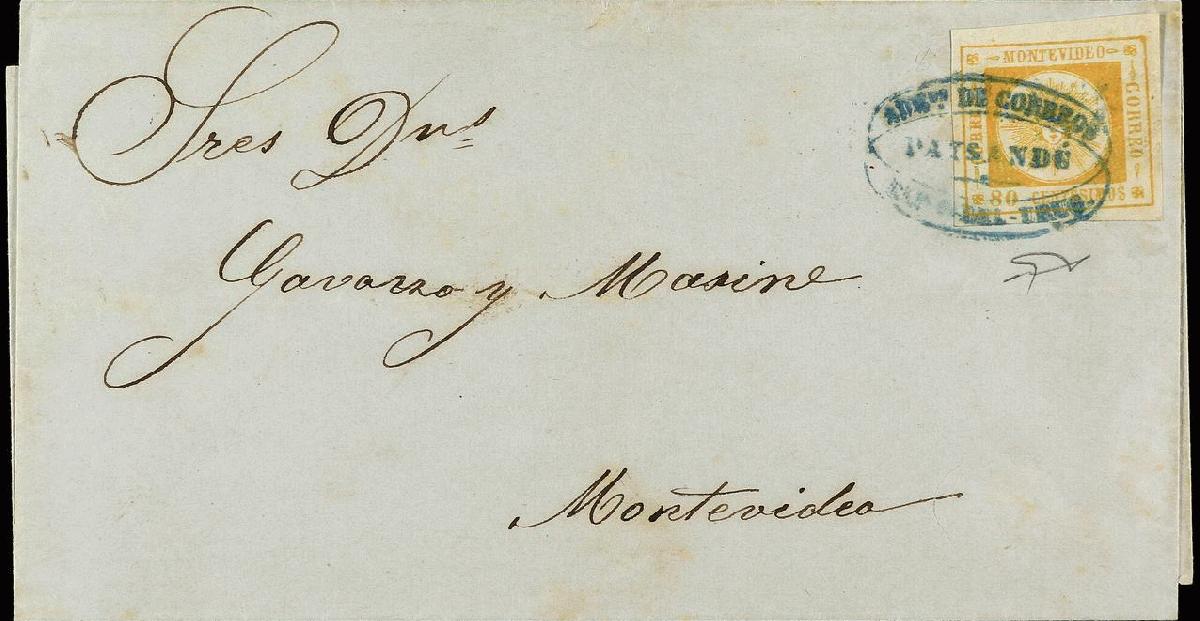 Sres Dns
Gavazzo y Marine
Montevideo
MONTEVIDEO
CORREO
80 CENTESIMOS
ADMON DE CORREOS
PAYSANDÚ